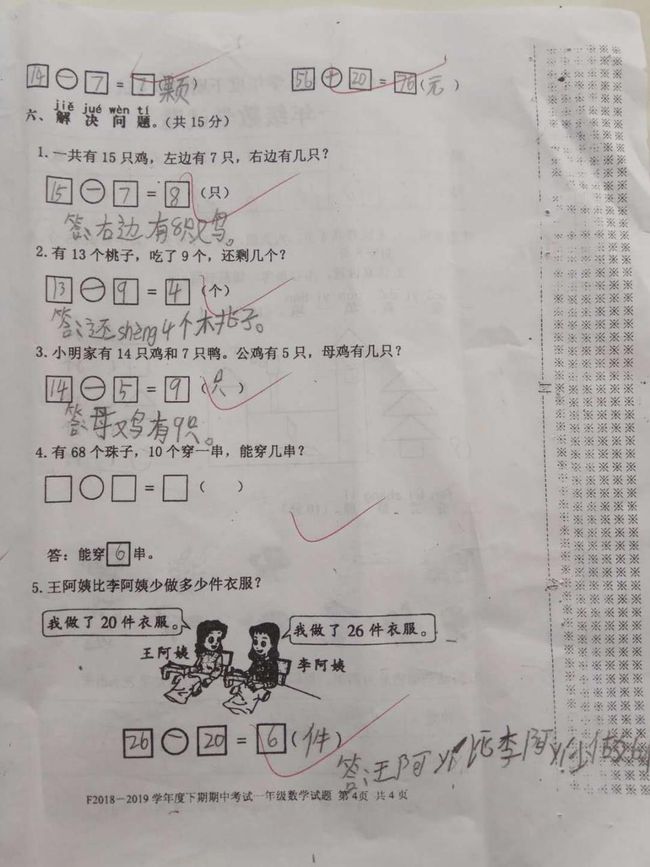 14 － 7 = 7（颗） 56 + 20 = 76（元）
jiě jué wèn tí
六、解决问题。（共 15 分）
1. 一共有 15 只鸡，左边有 7 只，右边有几只？
15 － 7 = 8（只）
答：右边有8只鸡。
2. 有 13 个桃子，吃了 9 个，还剩几个？
13 － 9 = 4（个）
答：还shèng4个桃子。
3. 小明家有 14 只鸡和 7 只鸭。公鸡有 5 只，母鸡有几只？
14 － 5 = 9（只）
答：母鸡有9只。
4. 有 68 个珠子，10 个穿一串，能穿几串？
□○□=□（ ）
答：能穿 6 串。
5. 王阿姨比李阿姨少做多少件衣服？
我做了 20 件衣服。 我做了 26 件衣服。
王阿姨 李阿姨
26 － 20 = 6（件）
答：王阿姨比李阿姨少做
F2018－2019 学年度下期期中考试一年级数学试题 第 4页 共 4 页